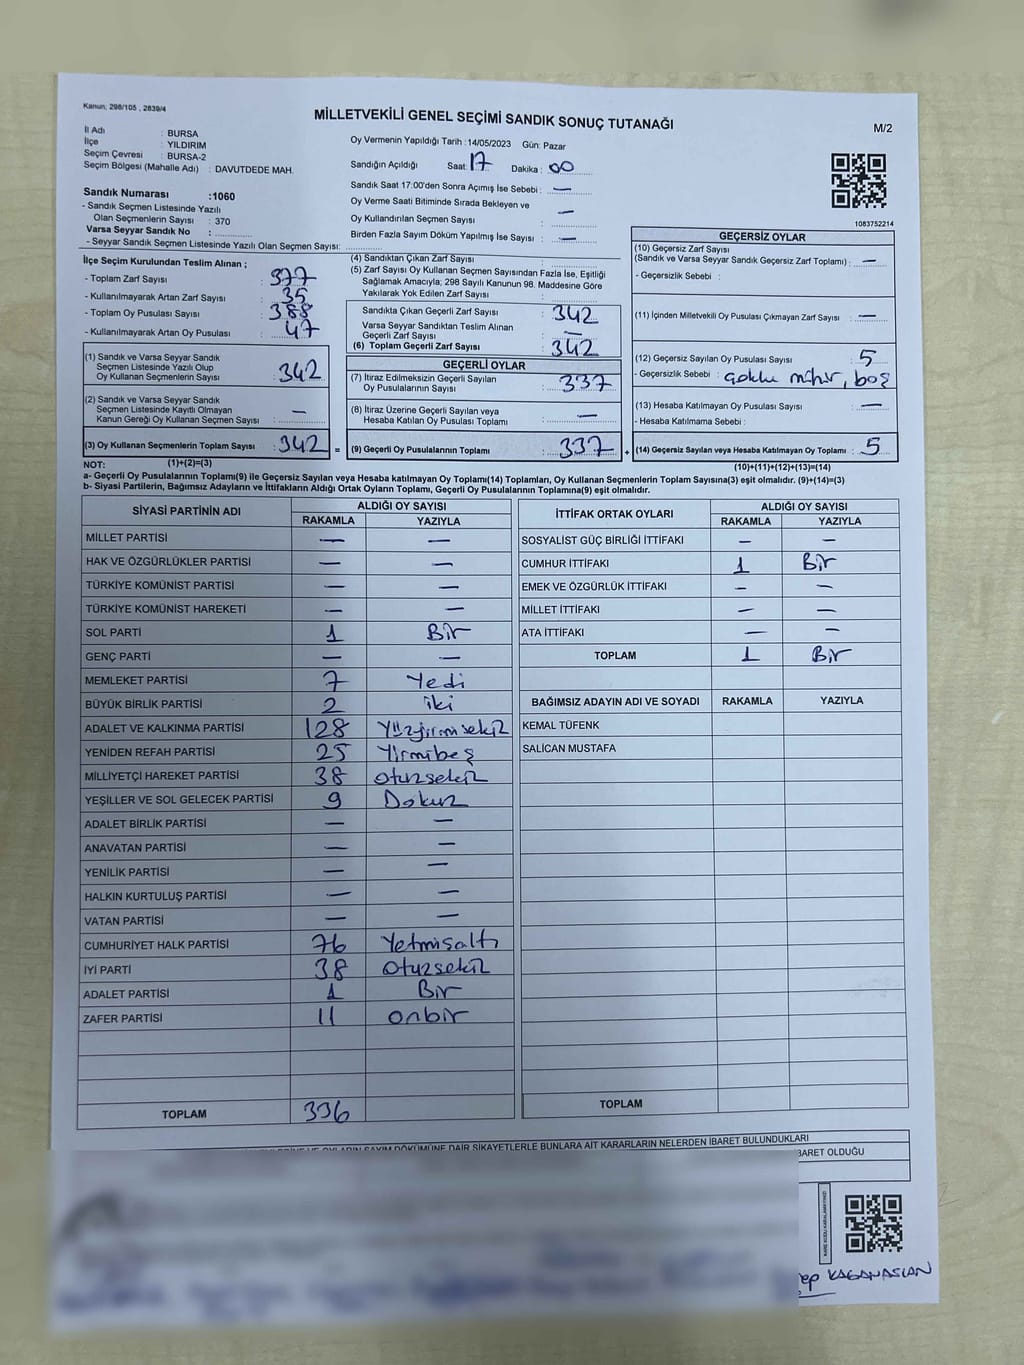 Kanun; 298/105 , 2839/4
MİLLETVEKİLİ GENEL SEÇİMİ SANDIK SONUÇ TUTANAĞI
M/2
İl Adı : BURSA
İlçe : YILDIRIM
Seçim Çevresi : BURSA-2
Seçim Bölgesi (Mahalle Adı) : DAVUTDEDE MAH.
Sandık Numarası :1060
- Sandık Seçmen Listesinde Yazılı
Olan Seçmenlerin Sayısı : 370
Varsa Seyyar Sandık No :
- Seyyar Sandık Seçmen Listesinde Yazılı Olan Seçmen Sayısı:
Oy Vermenin Yapıldığı Tarih :14/05/2023 Gün: Pazar
Sandığın Açıldığı Saat: 17 Dakika : 00
Sandık Saat 17:00'den Sonra Açımış İse Sebebi : —
Oy Verme Saati Bitiminde Sırada Bekleyen ve
Oy Kullandırılan Seçmen Sayısı : —
Birden Fazla Sayım Döküm Yapılmış İse Sayısı : —
1083752214
İlçe Seçim Kurulundan Teslim Alınan ;
- Toplam Zarf Sayısı : 377
- Kullanılmayarak Artan Zarf Sayısı : 35
- Toplam Oy Pusulası Sayısı : 388
- Kullanılmayarak Artan Oy Pusulası : 47
(1) Sandık ve Varsa Seyyar Sandık
Seçmen Listesinde Yazılı Olup
Oy Kullanan Seçmenlerin Sayısı : 342
(2) Sandık ve Varsa Seyyar Sandık
Seçmen Listesinde Kayıtlı Olmayan
Kanun Gereği Oy Kullanan Seçmen Sayısı : —
(3) Oy Kullanan Seçmenlerin Toplam Sayısı : 342 =
(1)+(2)=(3)
(4) Sandıktan Çıkan Zarf Sayısı :
(5) Zarf Sayısı Oy Kullanan Seçmen Sayısından Fazla İse, Eşitliği
Sağlamak Amacıyla; 298 Sayılı Kanunun 98. Maddesine Göre
Yakılarak Yok Edilen Zarf Sayısı :
Sandıkta Çıkan Geçerli Zarf Sayısı : 342
Varsa Seyyar Sandıktan Teslim Alınan
Geçerli Zarf Sayısı : —
(6) Toplam Geçerli Zarf Sayısı : 342
GEÇERLİ OYLAR
(7) İtiraz Edilmeksizin Geçerli Sayılan
Oy Pusulalarının Sayısı : 337
(8) İtiraz Üzerine Geçerli Sayılan veya
Hesaba Katılan Oy Pusulası Toplamı : —
(9) Geçerli Oy Pusulalarının Toplamı : 337 +
GEÇERSİZ OYLAR
(10) Geçersiz Zarf Sayısı
(Sandık ve Varsa Seyyar Sandık Geçersiz Zarf Toplamı) : —
- Geçersizlik Sebebi :
(11) İçinden Milletvekili Oy Pusulası Çıkmayan Zarf Sayısı : —
(12) Geçersiz Sayılan Oy Pusulası Sayısı : 5
- Geçersizlik Sebebi : mühür, boş
(13) Hesaba Katılmayan Oy Pusulası Sayısı : —
- Hesaba Katılmama Sebebi :
(14) Geçersiz Sayılan veya Hesaba Katılmayan Oy Toplamı : 5
(10)+(11)+(12)+(13)=(14)
NOT:
a- Geçerli Oy Pusulalarının Toplamı(9) ile Geçersiz Sayılan veya Hesaba katılmayan Oy Toplamı(14) Toplamları, Oy Kullanan Seçmenlerin Toplam Sayısına(3) eşit olmalıdır. (9)+(14)=(3)
b- Siyasi Partilerin, Bağımsız Adayların ve İttifakların Aldığı Ortak Oyların Toplamı, Geçerli Oy Pusulalarının Toplamına(9) eşit olmalıdır.
SİYASİ PARTİNİN ADI ALDIĞI OY SAYISI
RAKAMLA YAZIYLA
MİLLET PARTİSİ — —
HAK VE ÖZGÜRLÜKLER PARTİSİ — —
TÜRKİYE KOMÜNİST PARTİSİ — —
TÜRKİYE KOMÜNİST HAREKETİ — —
SOL PARTİ 1 Bir
GENÇ PARTİ — —
MEMLEKET PARTİSİ 7 Yedi
BÜYÜK BİRLİK PARTİSİ 2 iki
ADALET VE KALKINMA PARTİSİ 128 Yüzyirmisekiz
YENİDEN REFAH PARTİSİ 25 Yirmibeş
MİLLİYETÇİ HAREKET PARTİSİ 38 otuzsekiz
YEŞİLLER VE SOL GELECEK PARTİSİ 9 Dokuz
ADALET BİRLİK PARTİSİ — —
ANAVATAN PARTİSİ — —
YENİLİK PARTİSİ — —
HALKIN KURTULUŞ PARTİSİ — —
VATAN PARTİSİ — —
CUMHURİYET HALK PARTİSİ 76 Yetmişaltı
İYİ PARTİ 38 otuzsekiz
ADALET PARTİSİ 1 Bir
ZAFER PARTİSİ 11 onbir
TOPLAM 336
İTTİFAK ORTAK OYLARI ALDIĞI OY SAYISI
RAKAMLA YAZIYLA
SOSYALİST GÜÇ BİRLİĞİ İTTİFAKI — —
CUMHUR İTTİFAKI 1 Bir
EMEK VE ÖZGÜRLÜK İTTİFAKI — —
MİLLET İTTİFAKI — —
ATA İTTİFAKI — —
TOPLAM 1 Bir
BAĞIMSIZ ADAYIN ADI VE SOYADI RAKAMLA YAZIYLA
KEMAL TÜFENK
SALİCAN MUSTAFA
TOPLAM
DÖKÜMÜNE DAİR ŞİKAYETLERLE BUNLARA AİT KARARLARIN NELERDEN İBARET BULUNDUKLARI
BARET OLDUĞU